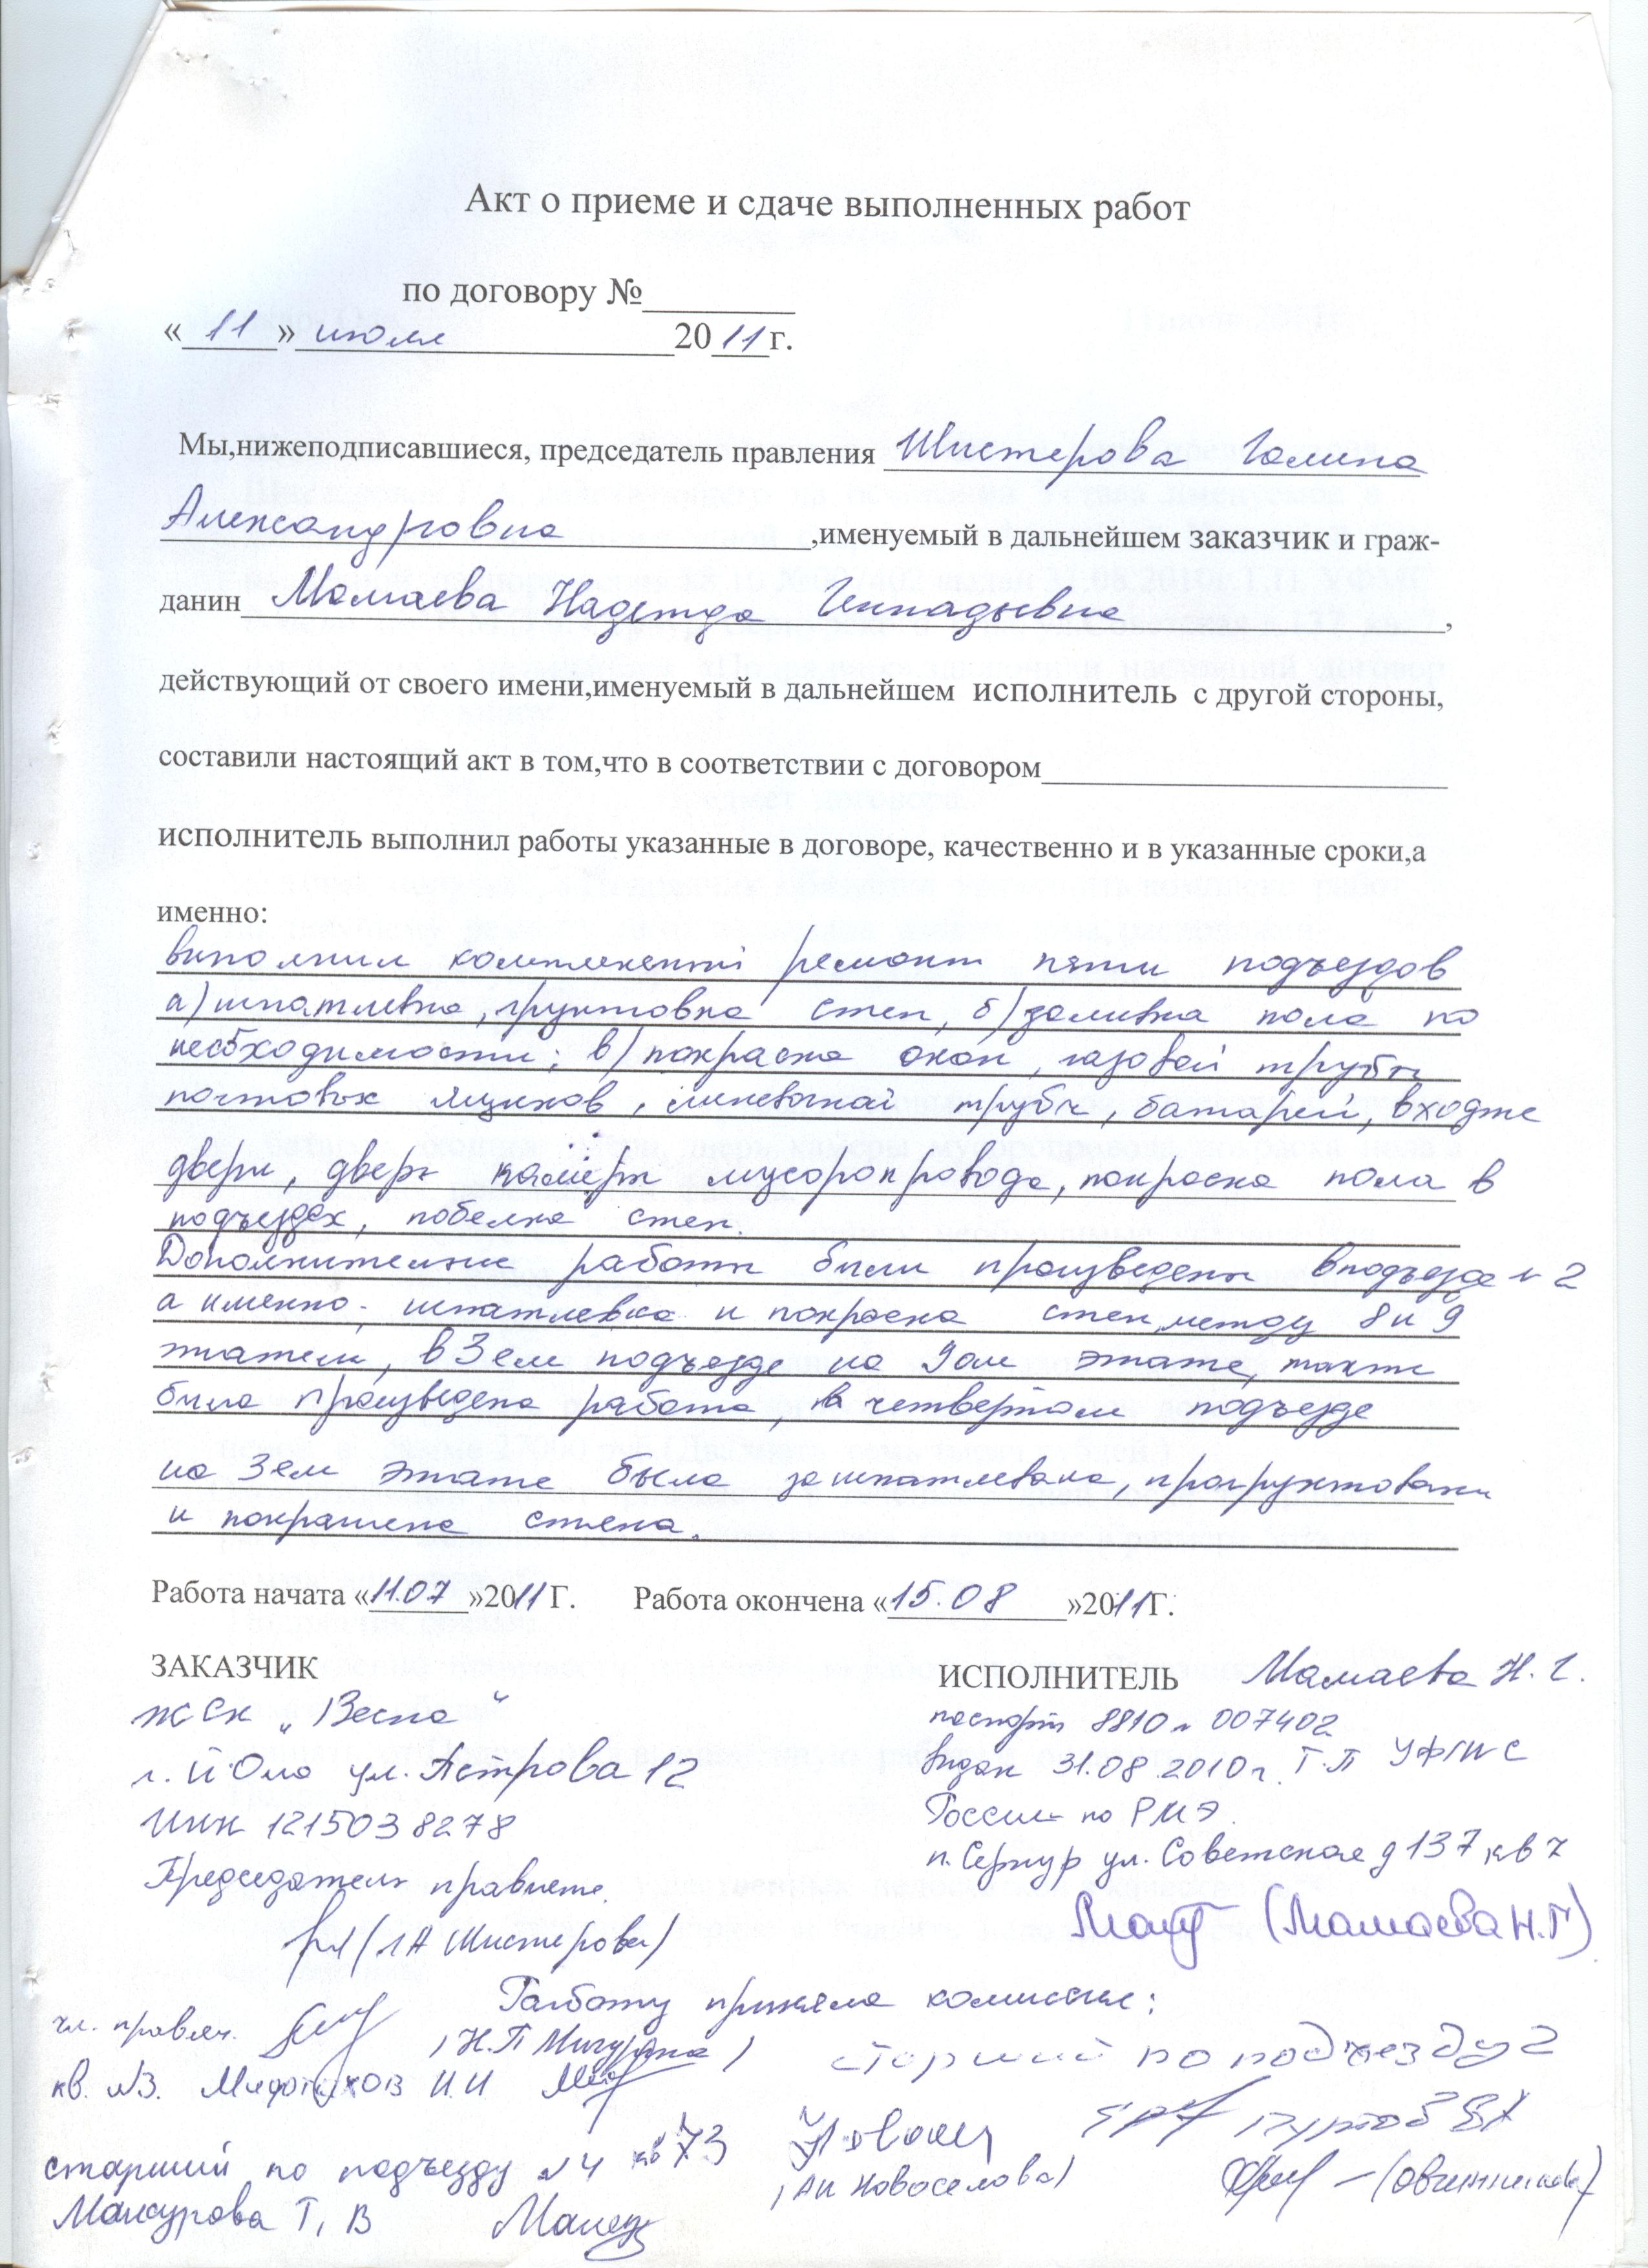 Акт о приеме и сдаче выполненных работ
по договору №________
« 11 » июля 20 11 г.
Мы,нижеподписавшиеся, председатель правления Шистерова Галина
Александровна ,именуемый в дальнейшем заказчик и граж-
данин Мамаева Надежда Геннадьевна ,
действующий от своего имени,именуемый в дальнейшем исполнитель с другой стороны,
составили настоящий акт в том,что в соответствии с договором
исполнитель выполнил работы указанные в договоре, качественно и в указанные сроки,а
именно:
выполнил ремонт пяти подъездов
а) шпатлевка, грунтовка стен, б) заливка пола по
необходимости; в) покраска окон, газовой трубы
почтовых ящиков, ливневочной трубы, батарей, входные
двери, дверь камеры мусоропровода, покраска пола в
подъездах, побелка стен.
Дополнительные работы были произведены в подъезде № 2
а именно: шпатлевка и покраска стен, между 8 и 9
этажем, в 3 ем подъезде на 9 ом этаже, также
была произведена работа, в четвертом подъезде
на 3 ем этаже была зашпатлевана, прогрунтована
и покрашена стена.
Работа начата « 11.07 »2011 Г. Работа окончена « 15.08 »2011Г.
ЗАКАЗЧИК ИСПОЛНИТЕЛЬ Мамаева Н. Г.
ЖСК „Весна“
паспорт 8810 № 007402
г. Й-Ола ул. Петрова 12
выдан 31.08.2010 г. Т.П УФМС
ИНН 1215038278
России по РМЭ.
Председатель правления.
п. Сернур ул. Советская д 137 кв 7
(Г А Шистерова)
(Мамаева Н.Г)
Работу приняла комиссия:
чл. правлен. (Н.П Мичурина)
старший по подъезду 2
кв. №3. И.И
старший по подъезду №4 кв 73
(АИ Новоселова) (Овчинникова)
Мансурова Т. В